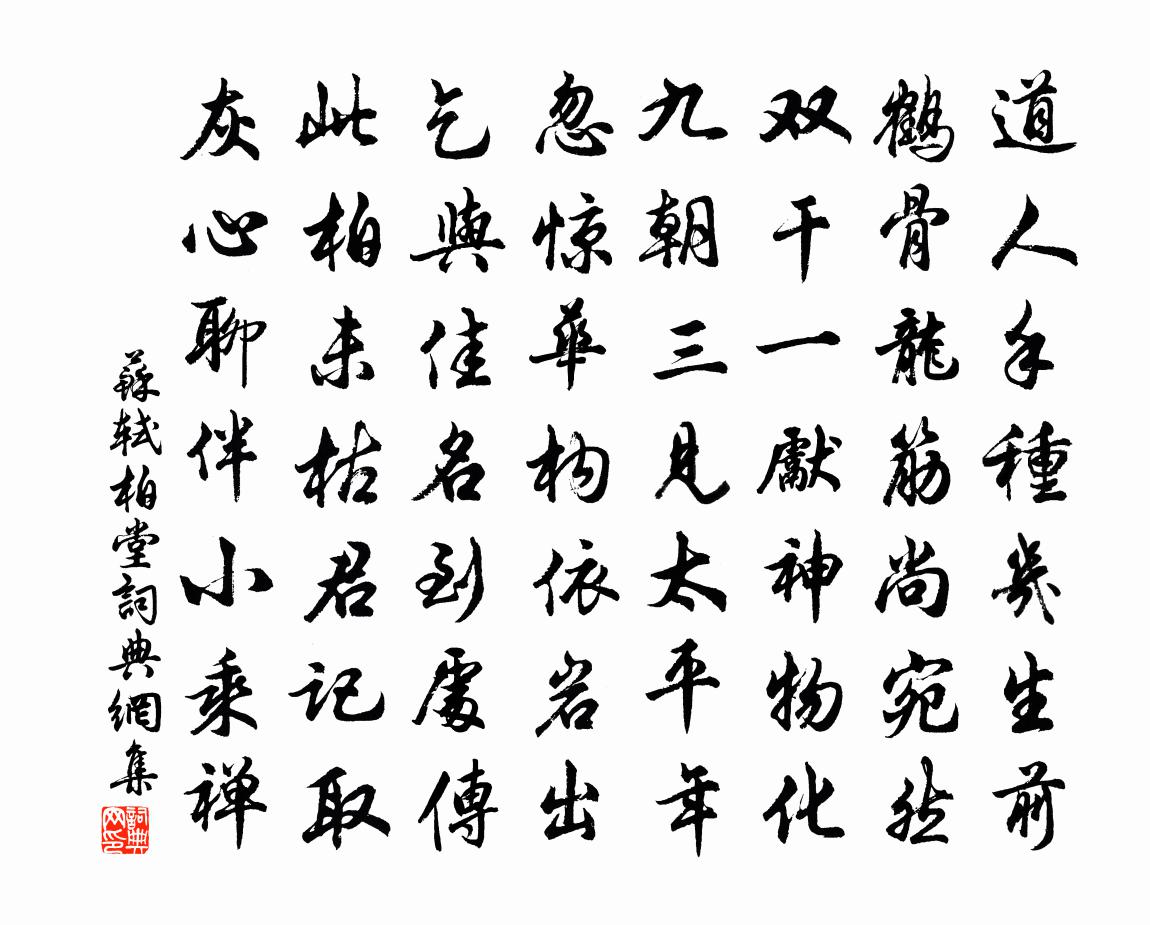 道人手種幾生前
鶴骨龍筋尚宛然
双干一獻神物化
九朝三見太平年
忽惊華构依岩出
乞與佳名到處傳
此柏未枯君記取
灰心聊伴小乘禅
蘇軾柏堂詞典網集
詞典
网印